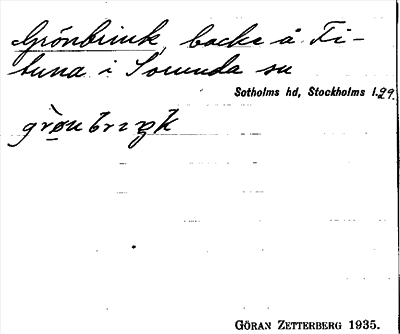 Grönbrink, backe å Fi-
tuna i Sorunda sn
Sotholms hd, Stockholms l. 29.
grø̀nbrıŋk
GÖRAN ZETTERBERG 1935.